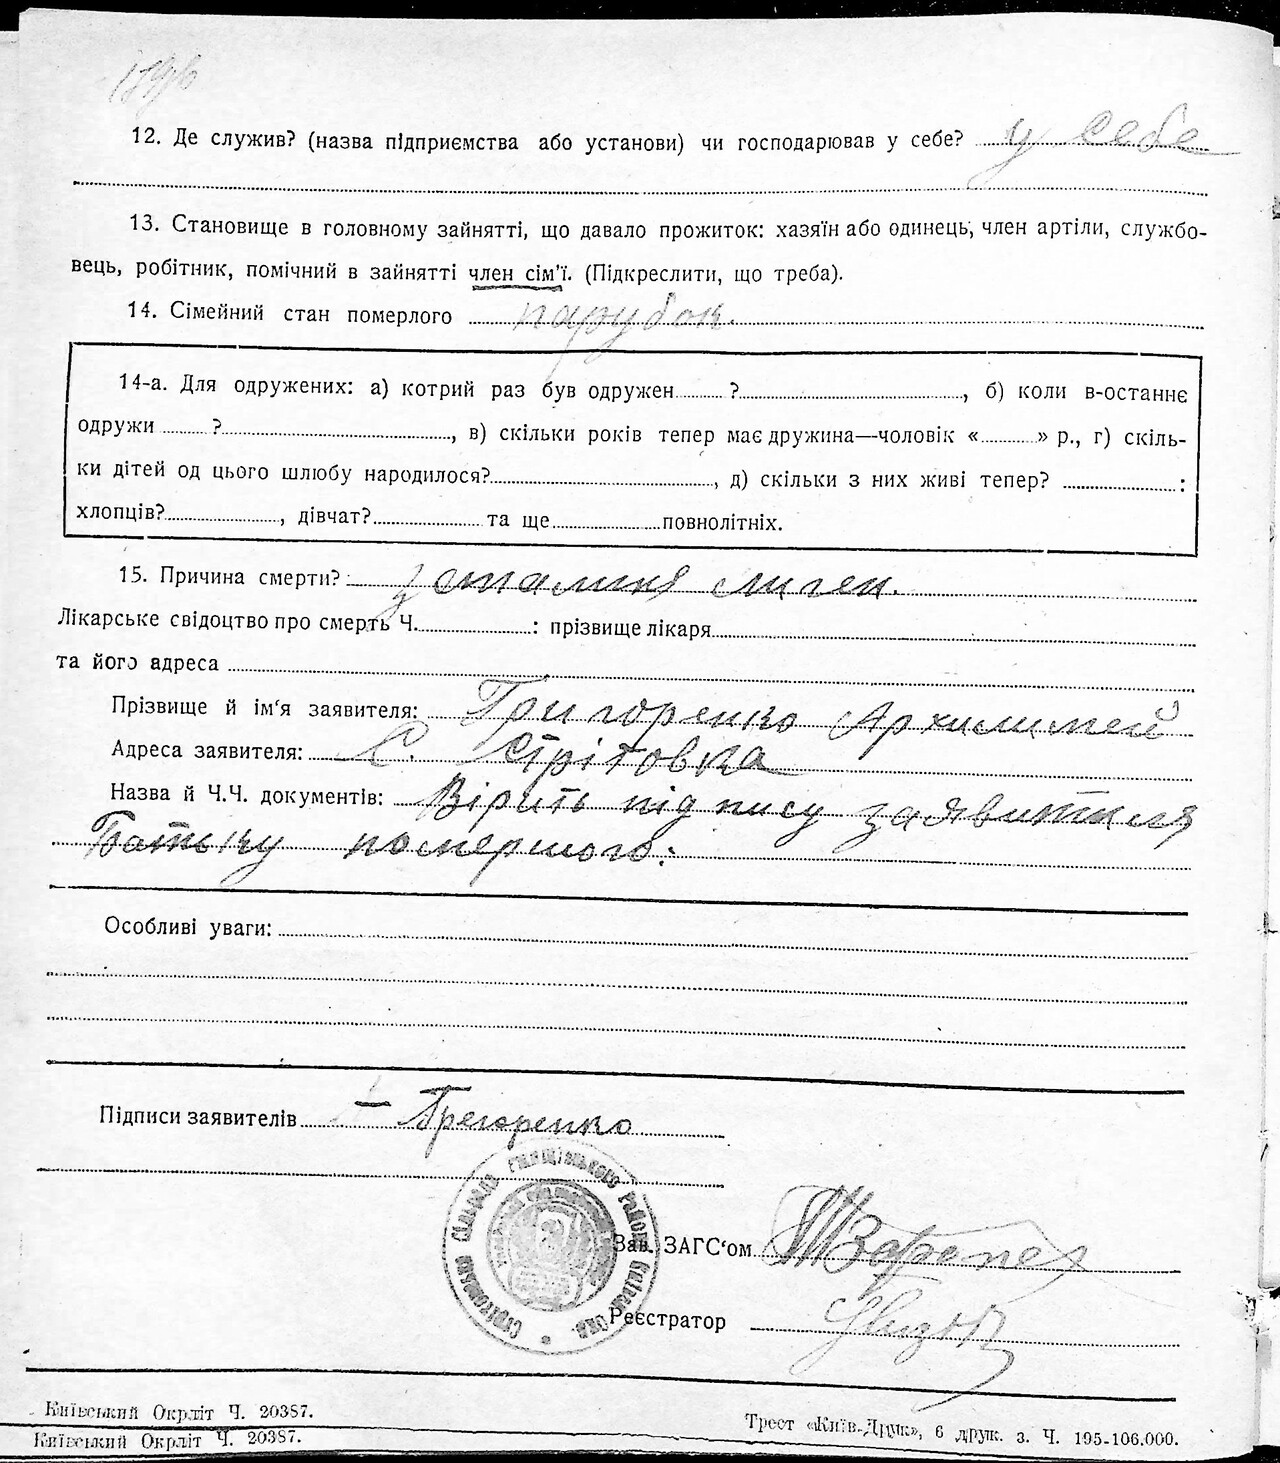 12. Де служив? (назва підприємства або установи) чи господарював у себе? у себе
13. Становище в головному зайнятті, що давало прожиток: хазяїн або одинець, член артіли, службо-
вець, робітник, помічний в зайнятті член сім'ї. (Підкреслити, що треба).
14. Сімейний стан померлого парубок.
14-а. Для одружених: а) котрий раз був одружен ?, б) коли в-останнє
одружи ?, в) скільки років тепер має дружина—чоловік « » р., г) скіль-
ки дітей од цього шлюбу народилося?, д) скільки з них живі тепер? :
хлопців?, дівчат? та ще повнолітніх.
15. Причина смерти?: легень.
Лікарське свідоцтво про смерть Ч. : прізвище лікаря
та його адреса
Прізвище й ім'я заявителя: Григоренко
Адреса заявителя: С. Стрітовка
Назва й Ч.Ч. документів: Вірить підпису заявителя
Батьку помершого:
Особливі уваги:
Підписи заявителів Грегоренко
Зав. ЗАГС'ом
Реєстратор
Київський Окрліт Ч. 20387.
Трест «Київ-Друк», 6 друк. з. Ч. 195-106.000.
Київський Окрліт Ч. 20387.